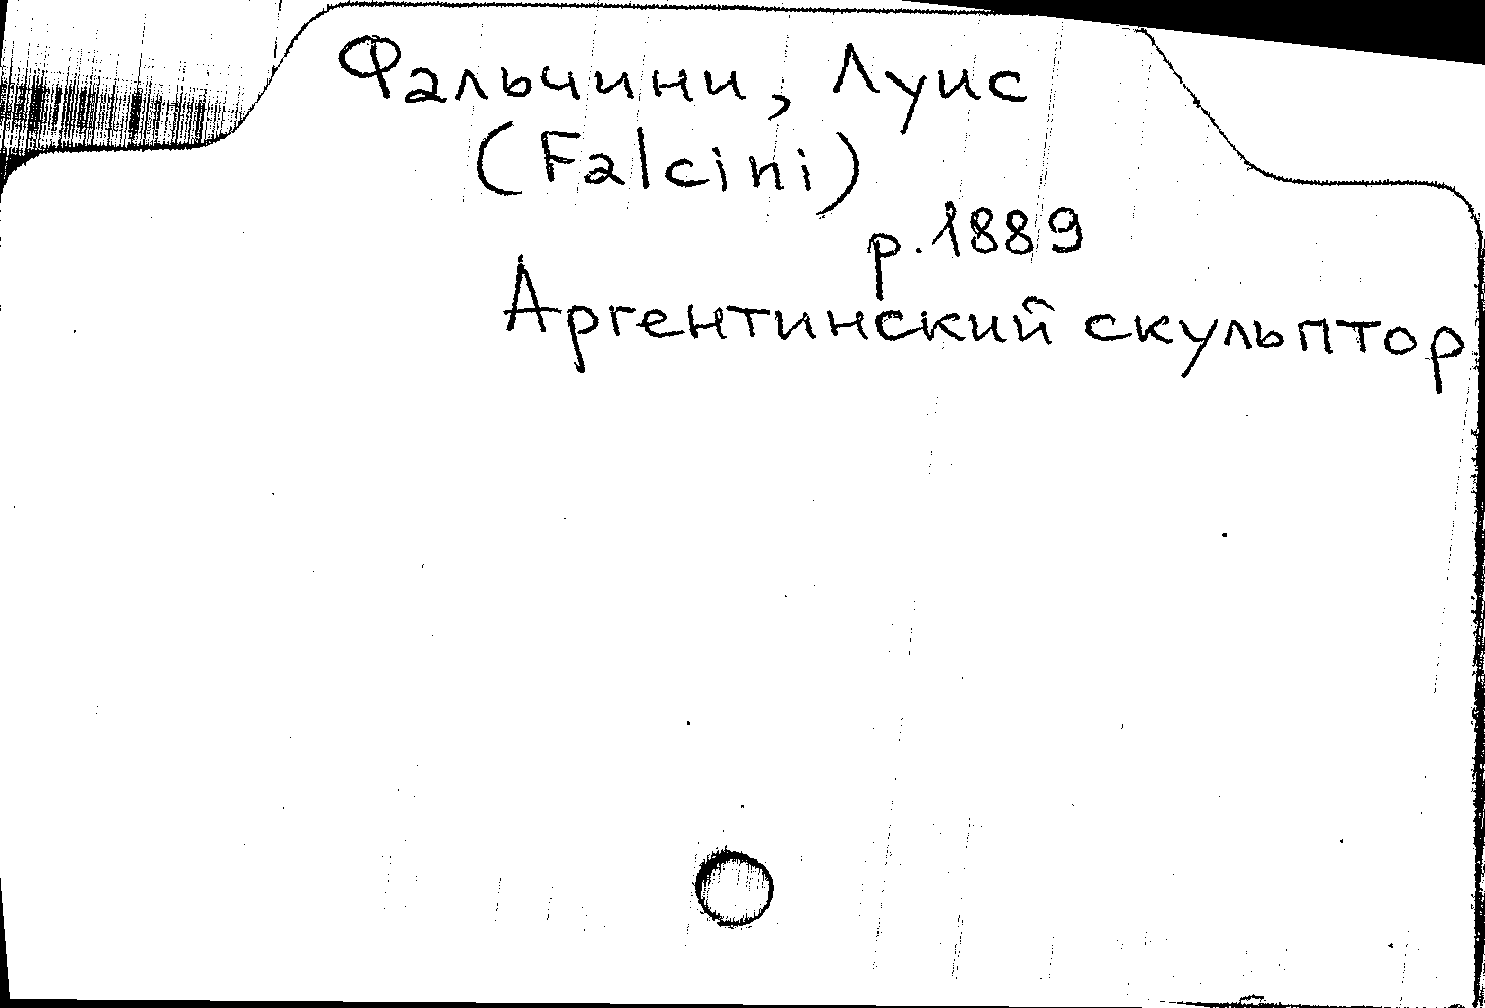 Фальчини, Луис
(Falcini)
р. 1889
Аргентинский скульптор